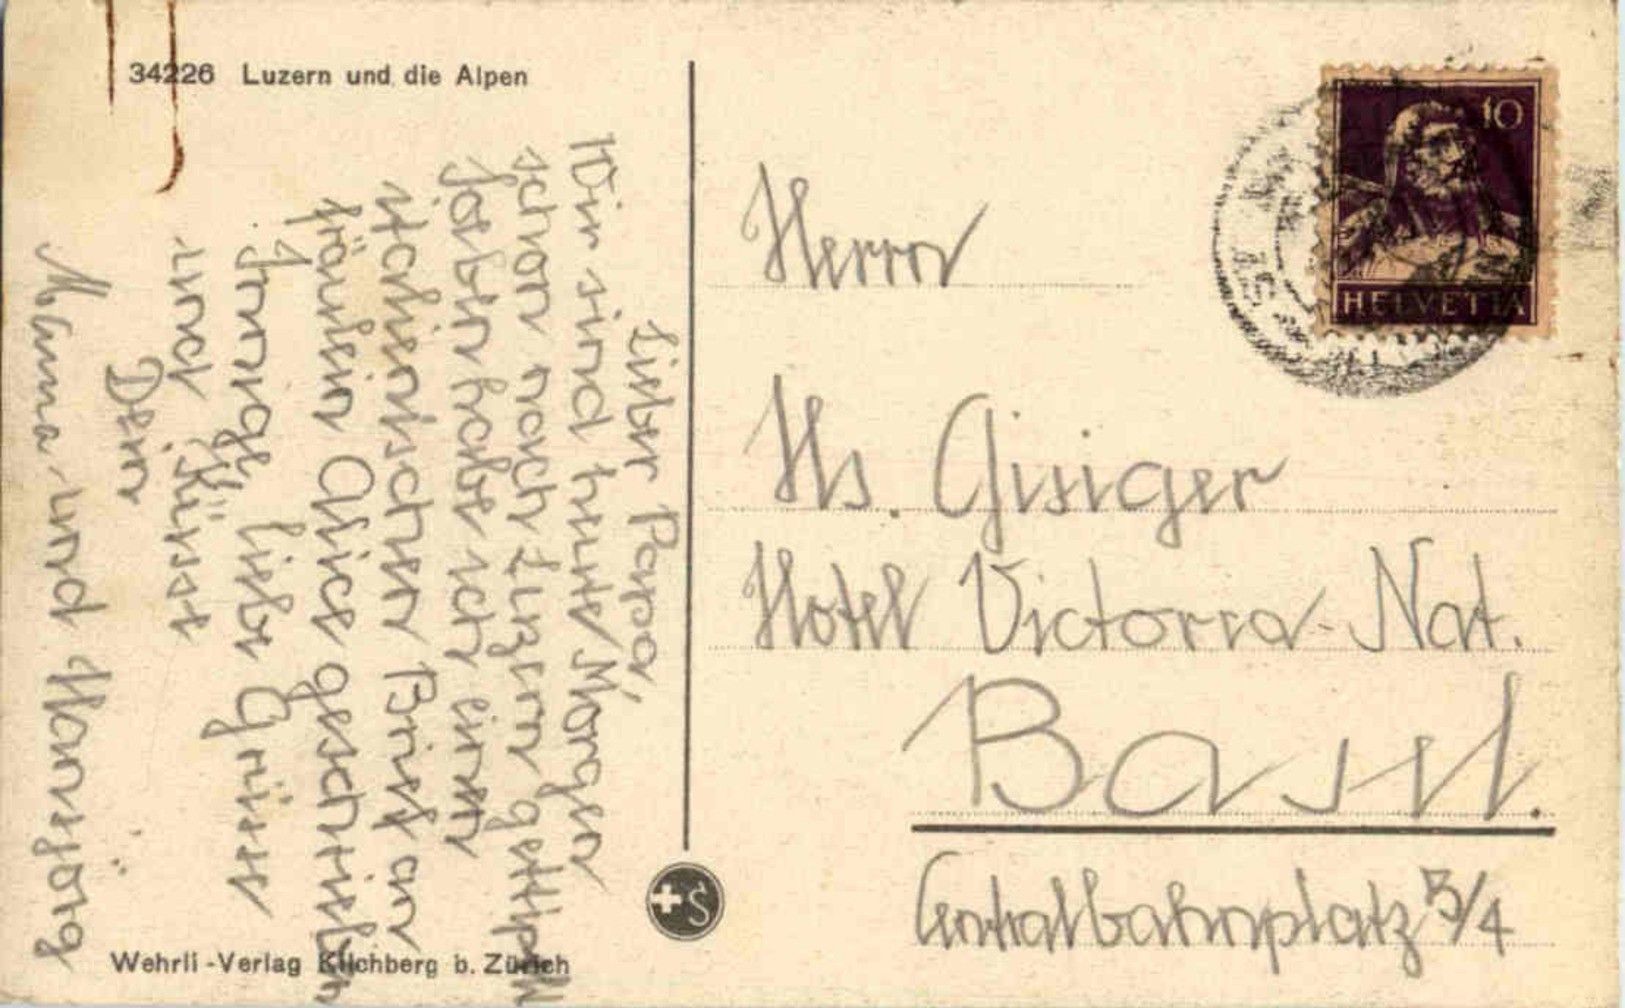 34226 Luzern und die Alpen
Lieber Papa,
Wir sind heute Morgen
schon nach Luzern
soeben habe ich einen
Brief an
Fräulein Alice geschrieben
Innige liebe Grüsse
und Küsse
Dein
Mama und Hansjörg
Wehrli-Verlag Kilchberg b. Zürich
S
10
HELVETIA
Herrn
Hs. Gisiger
Hotel Victoria-Nat.
Basel.
Centralbahnplatz 3/4